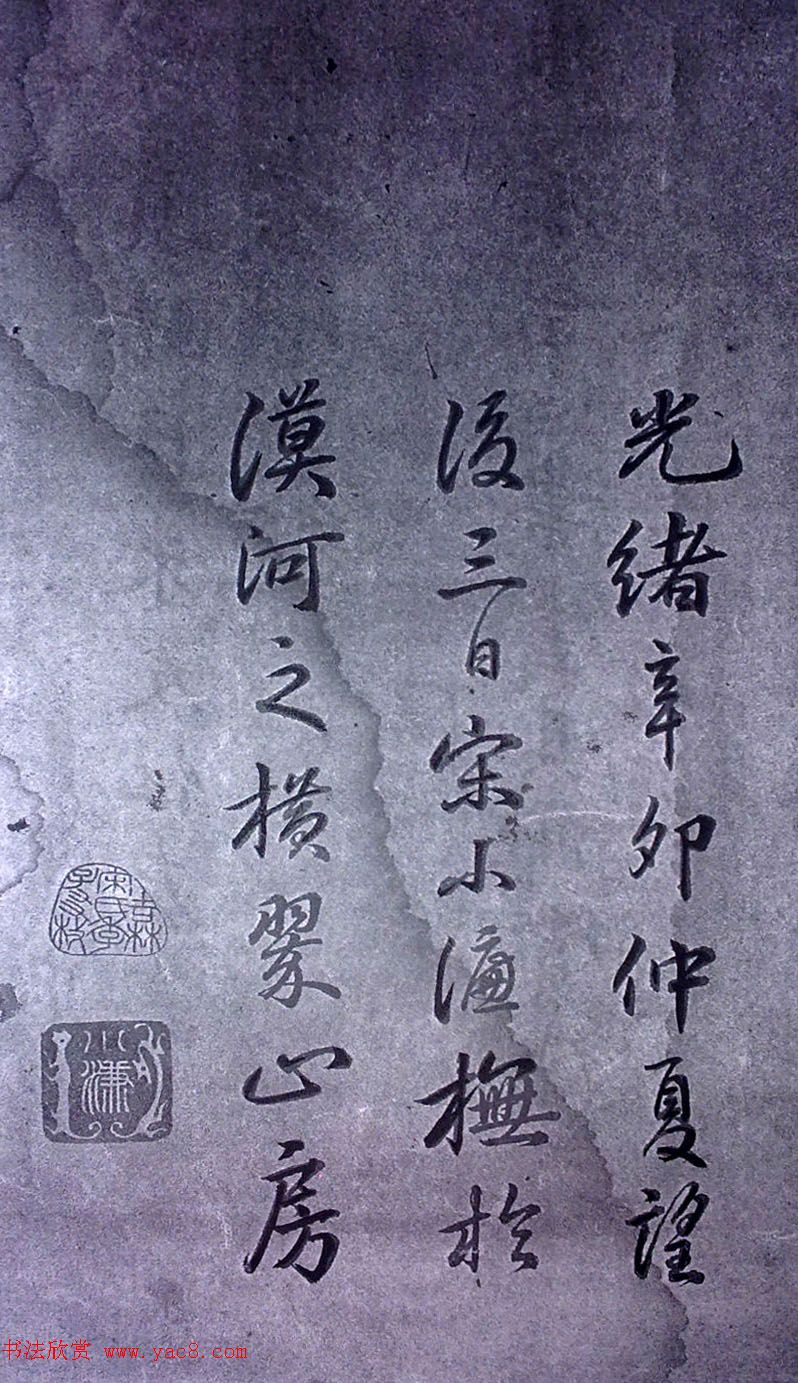 光绪辛卯仲夏望
後三日宋小濂橅於
漠河之横翠山房
小濂
书法欣赏 www.yac8.com